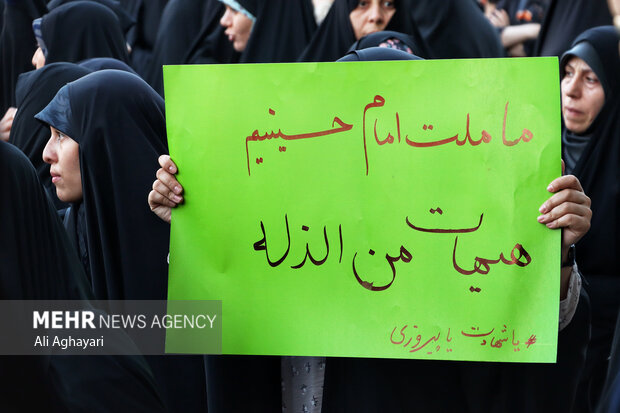 ما ملت امام حسینیم
هیهات من الذله
#یا شهادت یا پیروزی
MEHR NEWS AGENCY
Ali Aghayari